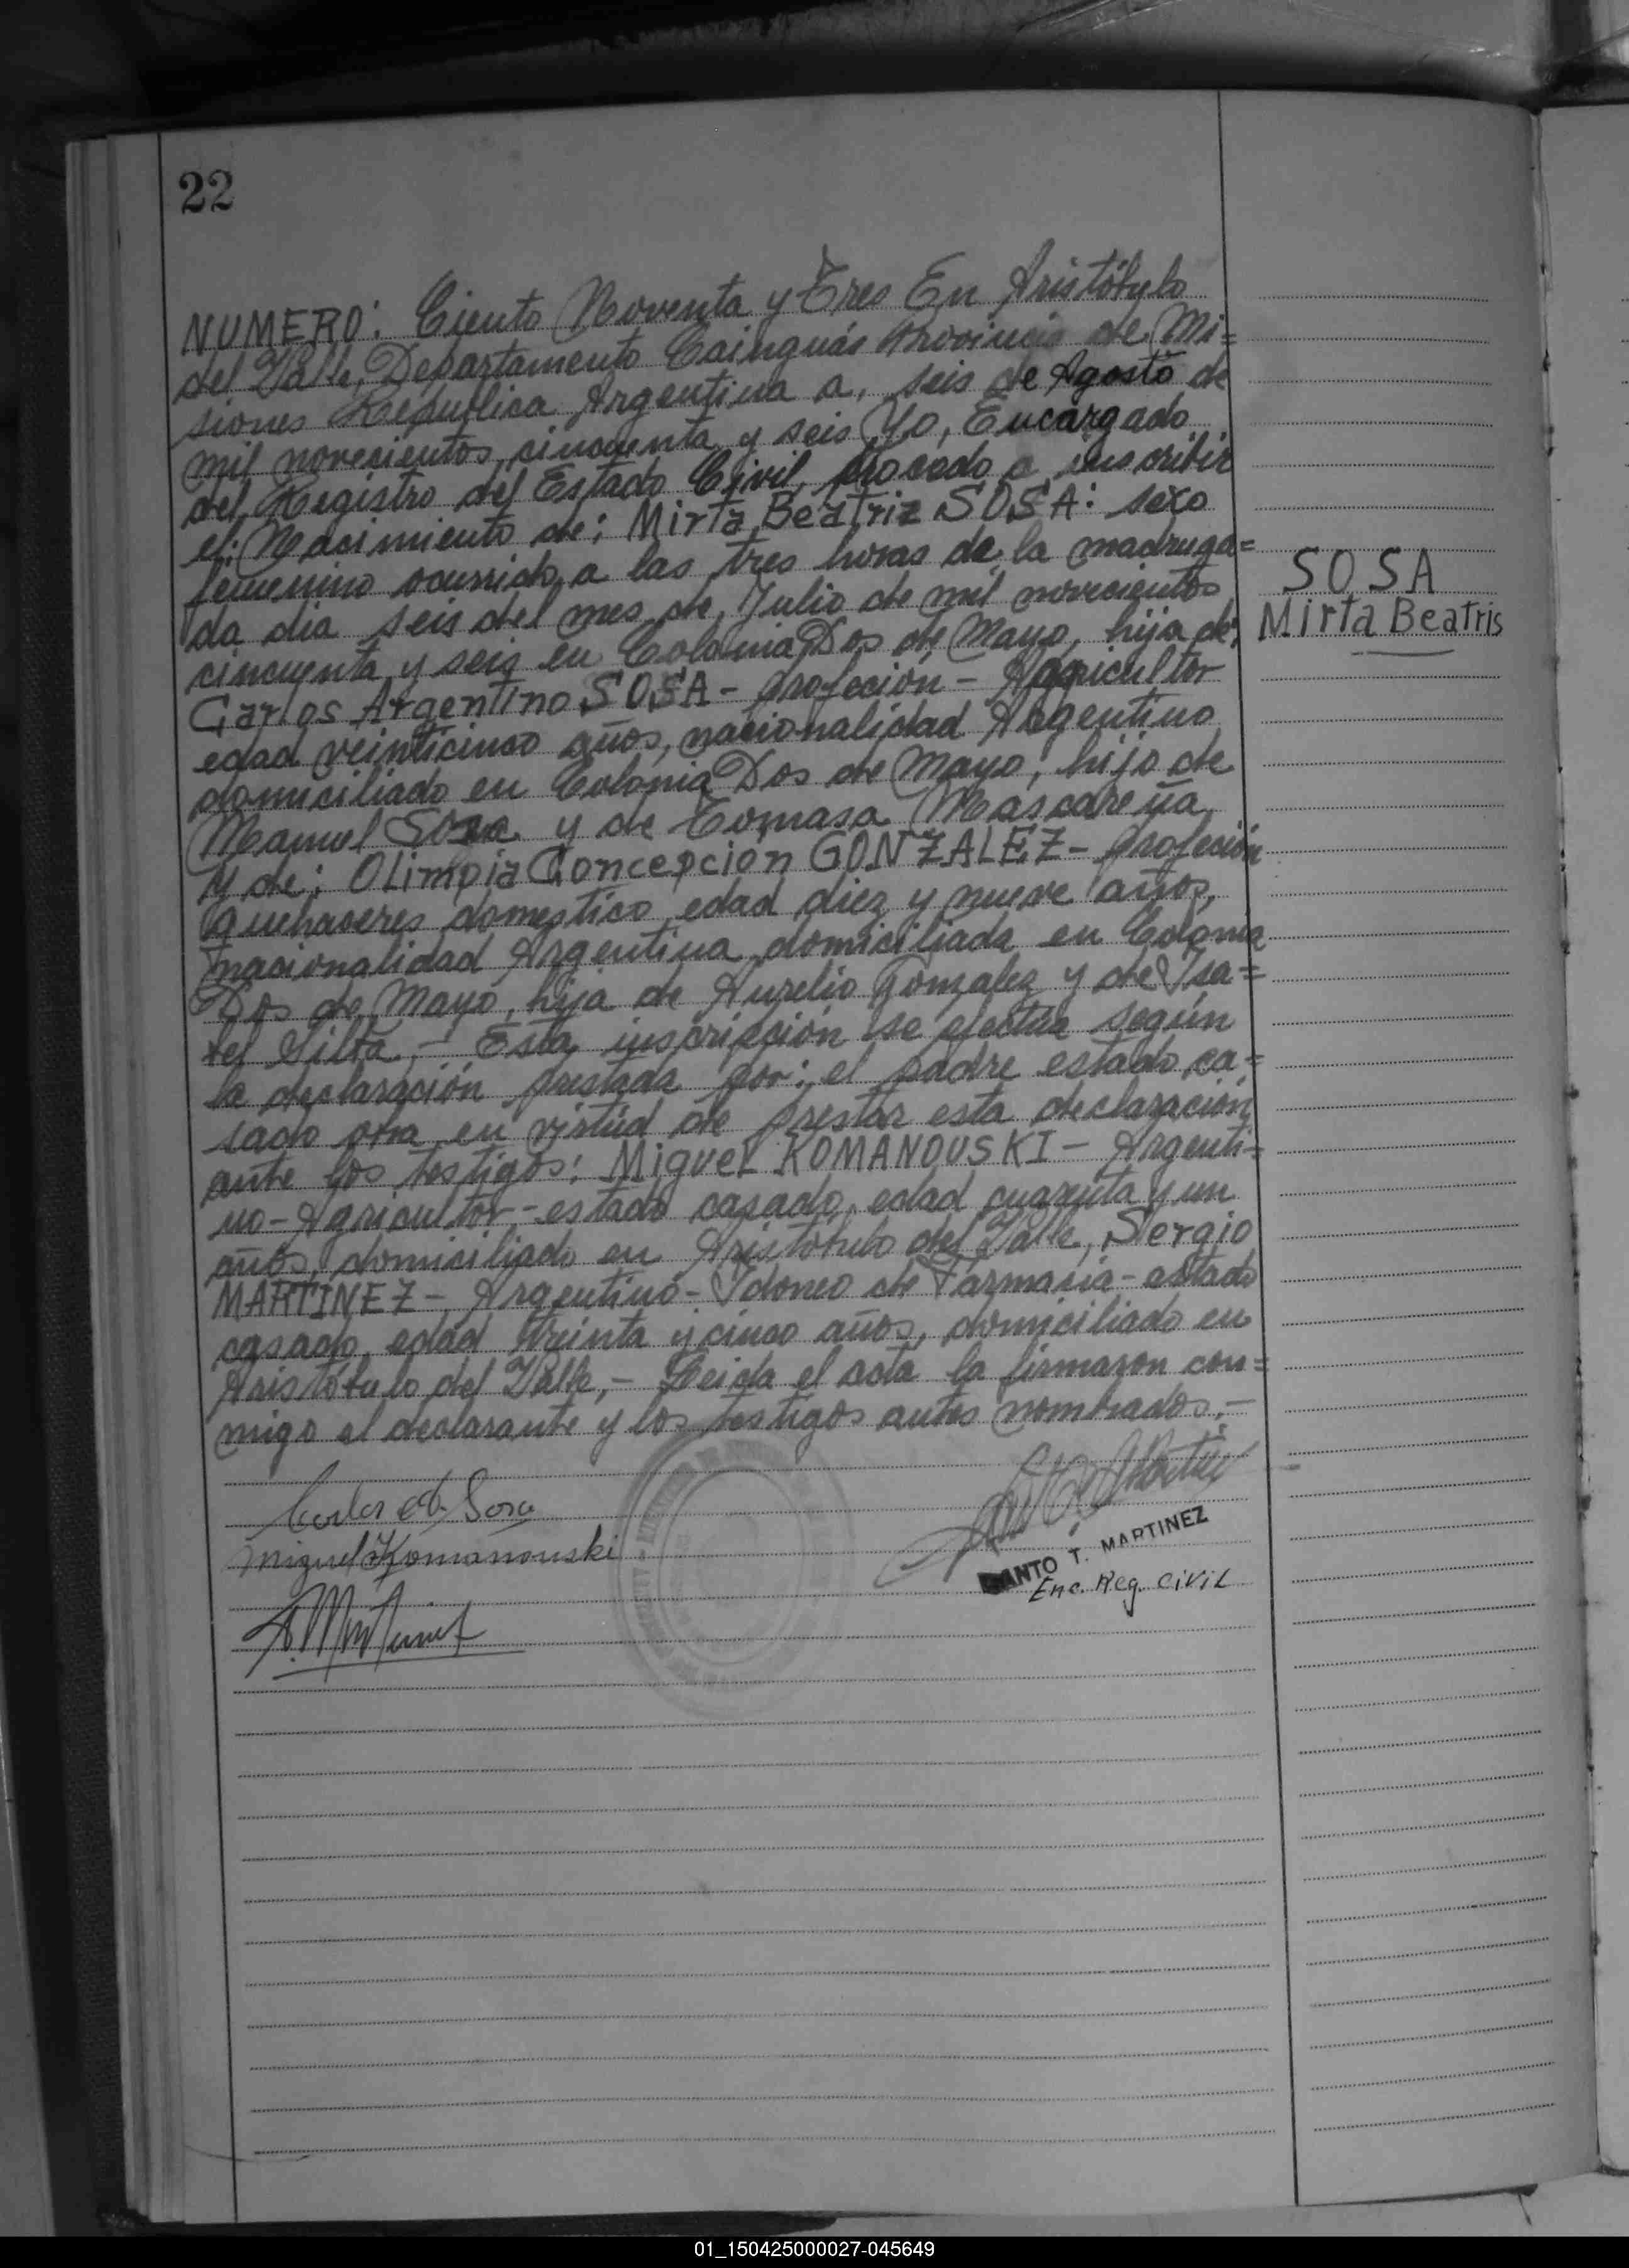 22
NUMERO: Ciento Noventa y Tres En Aristóbulo
del Valle, Departamento Cainguás Provincia de Mi=
siones República Argentina a, seis de Agosto de
mil novecientos cincuenta y seis Yo, Encargado
del Registro del Estado Civil, procedo a inscribir
el: Nacimiento de: Mirta Beatriz SOSA: sexo
femenino ocurrido a las tres horas de la madruga=
da dia seis del mes de, Julio de mil novecientos
cincuenta y seis en Colonia Dos de Mayo, hija de:
SOSA
Mirta Beatris
Carlos Argentino SOSA - profeción - Agricultor
edad veinticinco años, nacionalidad Argentino
domiciliado en Colonia Dos de Mayo, hijo de
Manuel Sosa y de Tomasa Mascareña
y de: Olimpia Concepción GONZALEZ - profeción
quehaseres domestico edad diez y nueve años,
nacionalidad Argentina domiciliada en Colonia
Dos de Mayo, hija de Aurelio Gonzalez y de Isa=
bel Silva,- Esta inscripción se efectúa según
la declaración prestada por: el padre estado ca=
sado en virtud de prestar esta declaración
ante los testigos: Miguel KOMANOUSKI - Argenti=
no - Agricultor - estado casado, edad cuarenta y un
años, domiciliado en Aristóbulo del Valle, Sergio
MARTINEZ - Argentino - Idoneo de Farmasia - estado
casado, edad treinta y cinco años, domiciliado en
Aristóbulo del Valle,- Leida el acta la firmaron con=
migo el declarante y los testigos antes nombrados.-
Carlos A. Sosa
Miguel Komanouski
SANTO T. MARTINEZ
Enc. Reg. Civil
S. Martinez
01_150425000027-045649